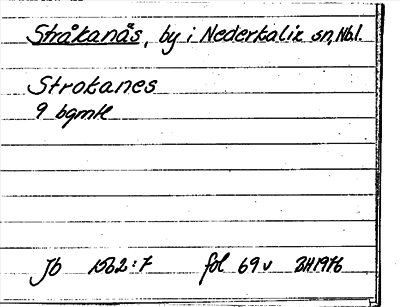 Stråkanäs, by i Nederkalix sn, Nbl.
Strokanes
9 bgmtl
Jb 1562:7 fol 69v BH1976